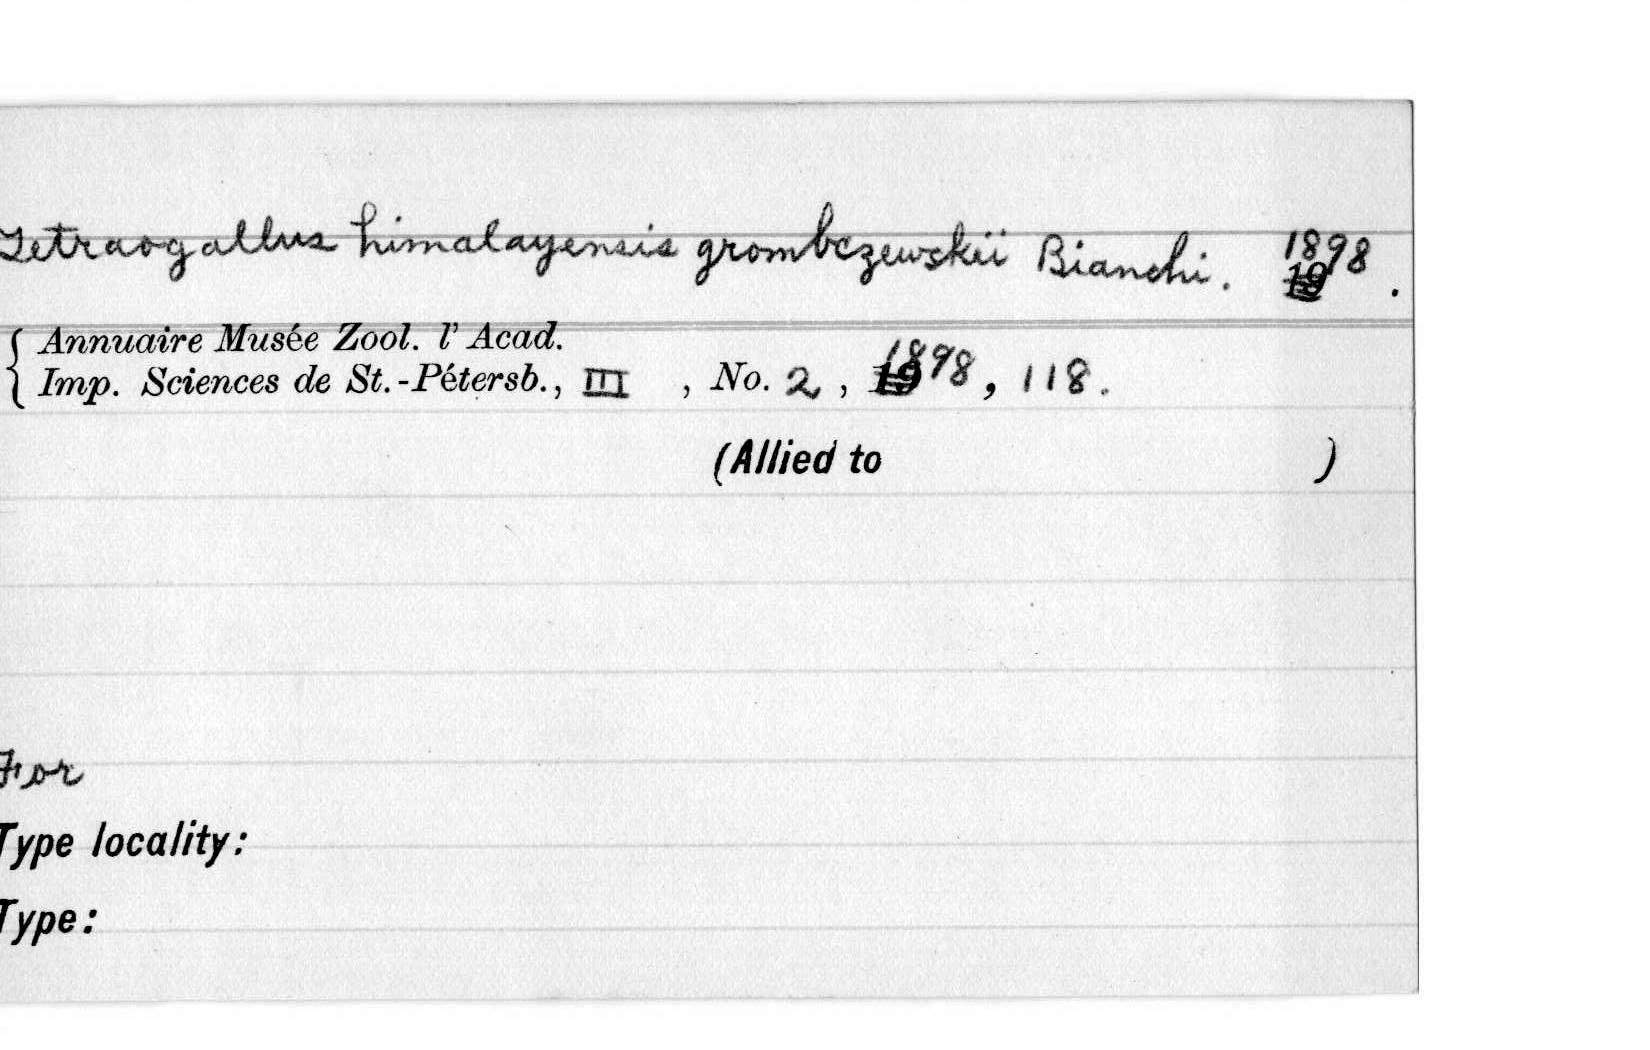 Tetraogallus himalayensis grombczewskii Bianchi. 1898.
Annuaire Musée Zool. l' Acad.
Imp. Sciences de St.-Pétersb., III, No. 2, 1898, 118.
(Allied to )
For
Type locality:
Type: